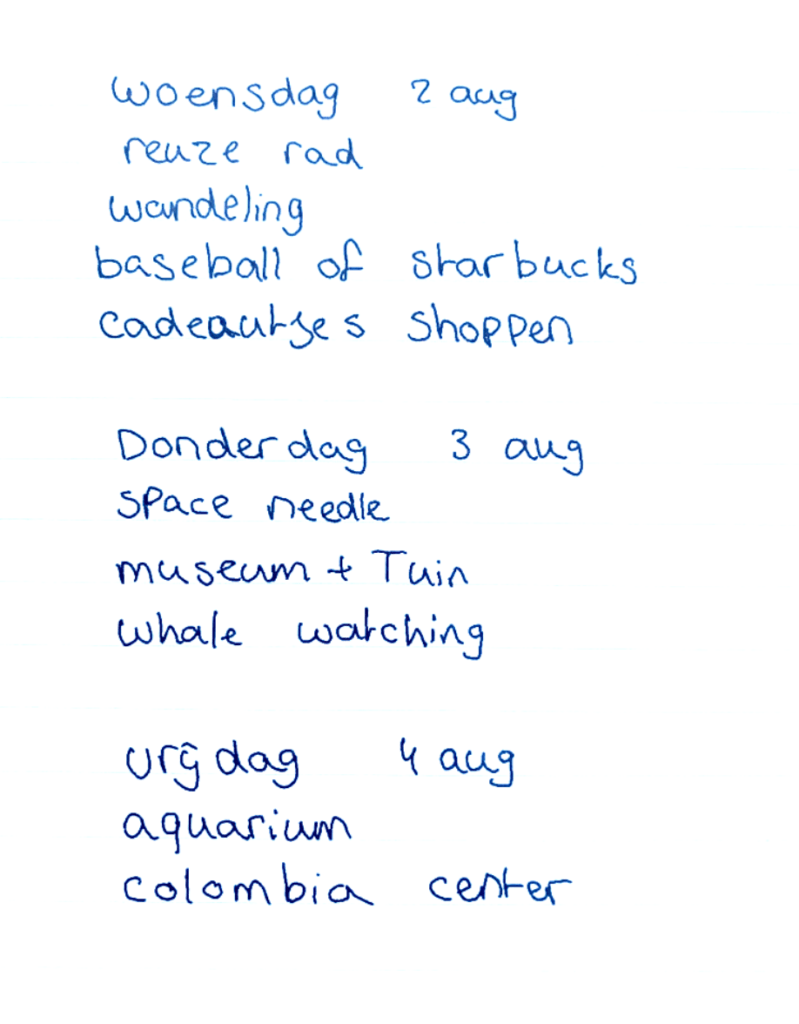 woensdag 2 aug
reuze rad
wandeling
baseball of starbucks
cadeautjes shoppen
Donderdag 3 aug
space needle
museum + Tuin
whale watching
vrijdag 4 aug
aquarium
colombia center